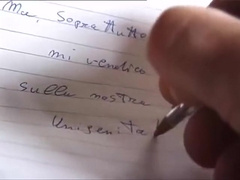 Ma. Soprattutto
mi vendico
sulla nostra
Unigenita